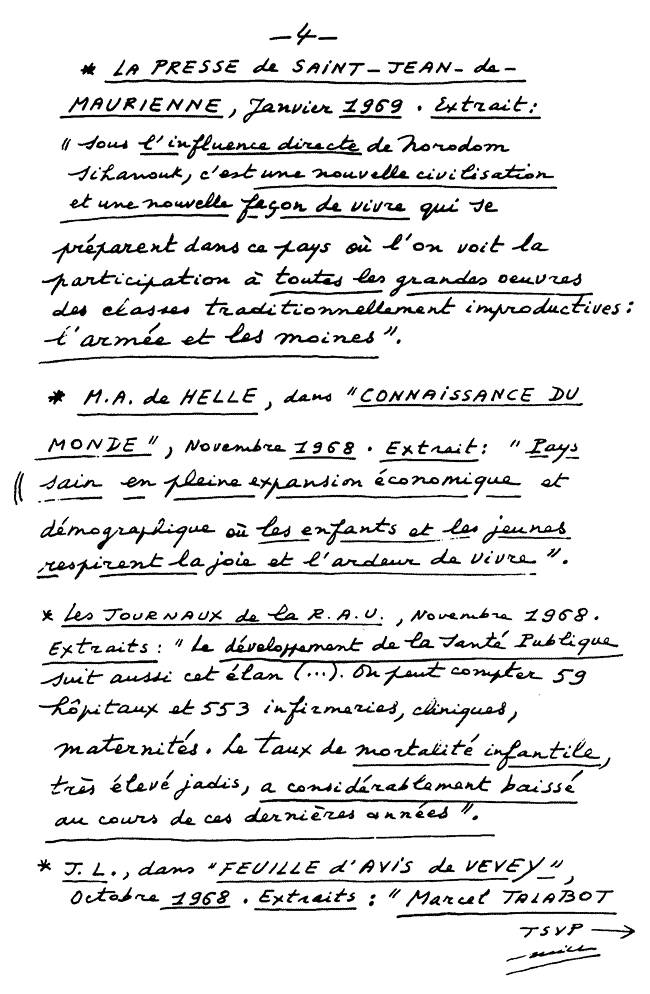 -4-
* LA PRESSE de SAINT-JEAN-de-
MAURIENNE, Janvier 1969. Extrait:
"sous l'influence directe de Norodom
Sihanouk, c'est une nouvelle civilisation
et une nouvelle façon de vivre qui se
préparent dans ce pays où l'on voit la
participation à toutes les grandes oeuvres
des classes traditionnellement improductives:
l'armée et les moines".
* M.A. de HELLE, dans "CONNAISSANCE DU
MONDE", Novembre 1968. Extrait: "Pays
sain en pleine expansion économique et
démographique où les enfants et les jeunes
respirent la joie et l'ardeur de vivre".
* Les JOURNAUX de la R.A.U., Novembre 1968.
Extraits: "Le développement de la Santé Publique
suit aussi cet élan (...). On peut compter 59
hôpitaux et 553 infirmeries, cliniques,
maternités. Le taux de mortalité infantile,
très élevé jadis, a considérablement baissé
au cours de ces dernières années".
* J.L., dans "FEUILLE d'AVIS de VEVEY",
Octobre 1968. Extraits: "Marcel TALABOT
TSVP →